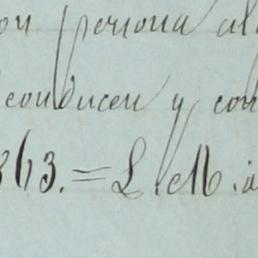 on persona al
conducen y con
863.=L. M. á